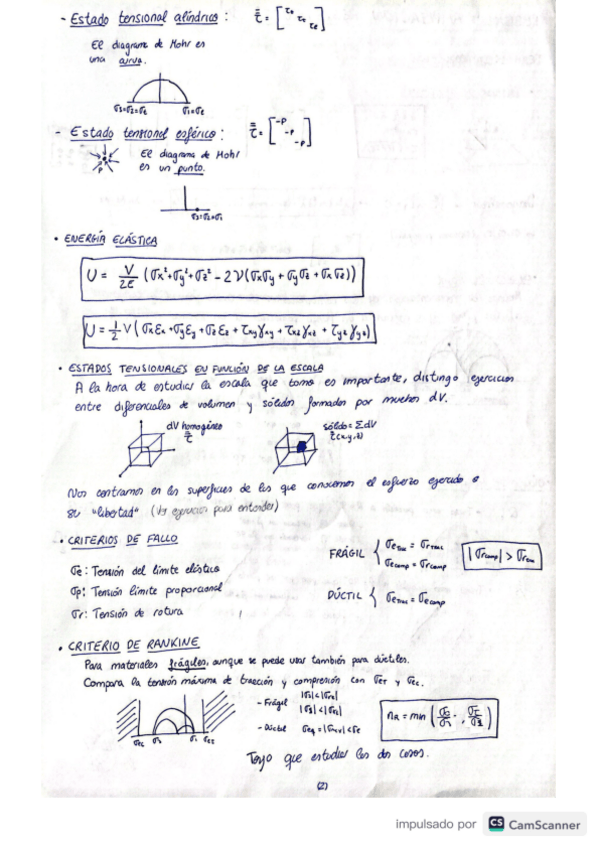 - Estado tensional cilíndrico: τ̿ = [σ₂ σₜ σₑ]
El diagrama de Mohr es
una curva.
σ3=σ2=σt σ1=σt
- Estado tensional esférico: τ̿ = [-P -P -P]
El diagrama de Mohr
es un punto.
P
σ3=σ2=σ1
• ENERGÍA ELÁSTICA
U = V/2E (σx²+σy²+σz² - 2ν(σxσy + σyσz + σxσz))
U = 1/2 V (σxεx + σyεy + σzεz + τxyγxy + τxzγxz + τyzγyz)
• ESTADOS TENSIONALES EN FUNCIÓN DE LA ESCALA
A la hora de estudiar la escala que tomo es importante, distingo ejercicios
entre diferenciales de volumen y sólidos formados por muchos dV.
dV homogéneo τ̿
sólido = Σ dV τ(x,y,z)
Nos centramos en las superficies de las que conocemos el esfuerzo ejercido o
su "libertad" (Ver ejercicios para entender)
• CRITERIOS DE FALLO
σe: Tensión del límite elástico
σp: Tensión límite proporcional
σr: Tensión de rotura
FRÁGIL { σe trac = σr trac
σe comp = σr comp
|σr comp| > σr trac
DÚCTIL { σe trac = σe comp
• CRITERIO DE RANKINE
Para materiales frágiles, aunque se puede usar también para dúctiles.
Compara la tensión máxima de tracción y compresión con σet y σec.
σec σ3 σ1 σet
- Frágil |σ1|<|σet|
|σ3|<|σec|
- Dúctil σeq=|σmáx|<σe
nR = min
Tengo que estudiar los dos casos.
(2)
impulsado por CS CamScanner